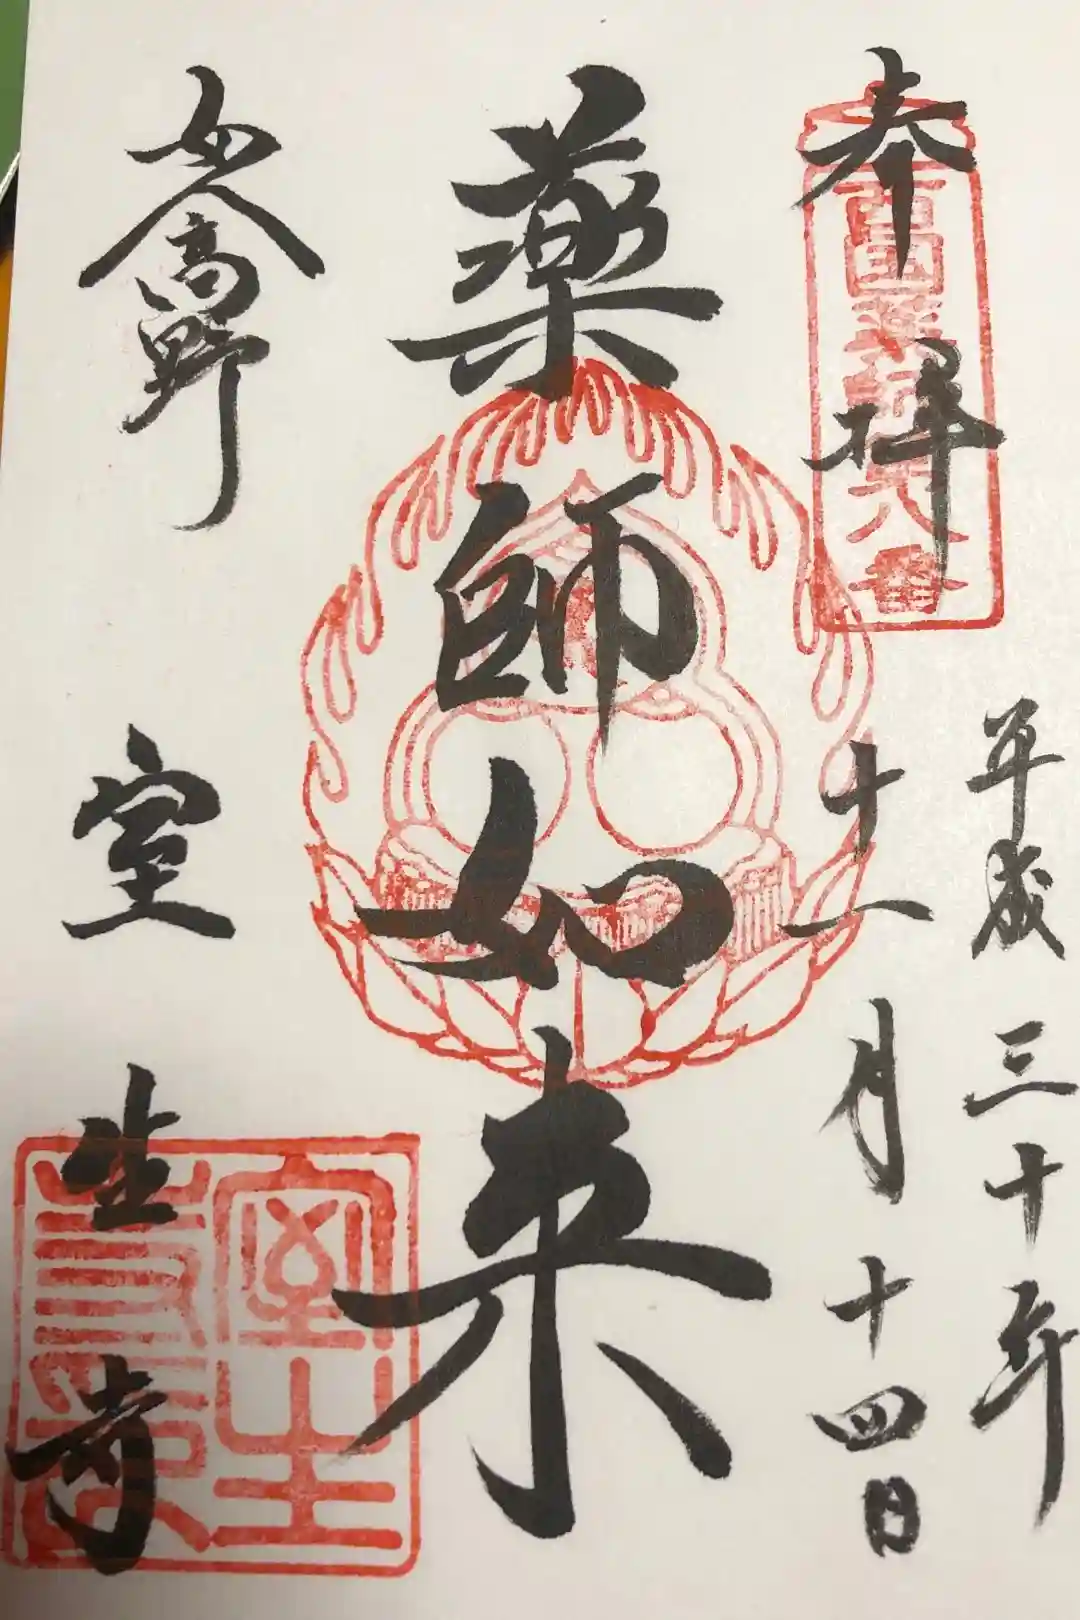 奉拝
西国薬師第八番
平成三十年
十一月十四日
薬師如来
女人高野
室生寺
室生